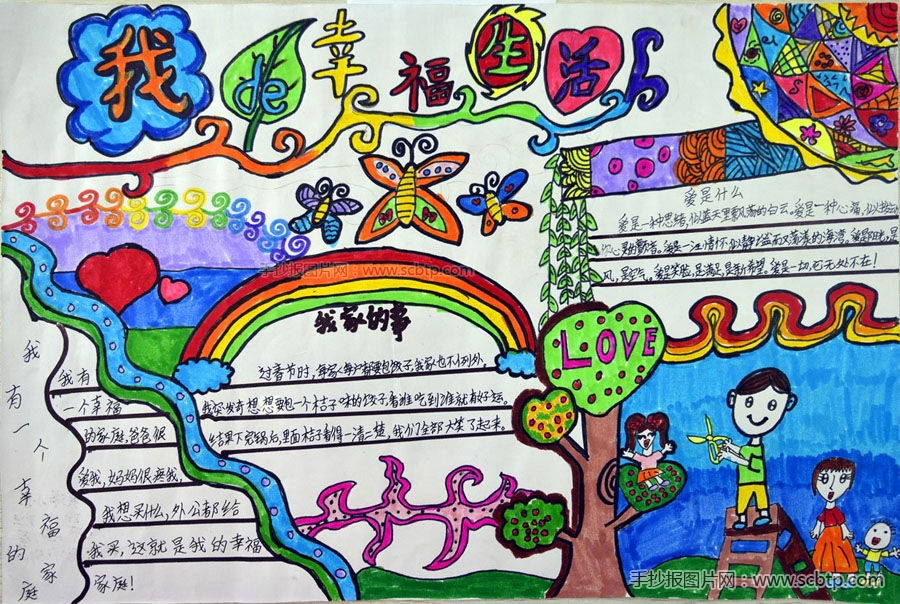 我de幸福生活
爱是什么
爱是一种思绪,似蓝天里飘荡的白云,爱是一种心
心灵的歌唱。爱是一江情怀,似静谧而又荡漾的海湾。爱是阳光,是
风,是空气,爱是笑脸,是满足,是新希望。爱是一切,无处不在!
手抄报图片网:www.scbtp.com
我家的事
过春节时,每家每户都要包饺子,我家也不例外,
我突发奇想想要包一个桔子味的饺子,看谁吃到谁就有好运。
结果下完锅后,里面桔子看得一清二楚,我们全部大笑了起来。
LOVE
我有一个幸福的家庭
我有
一个幸福
的家庭,爸爸很
爱我,妈妈很疼我,
我想买什么,外公都给
我买,这就是我的幸福
家庭!
手抄报图片网:www.scbtp.com